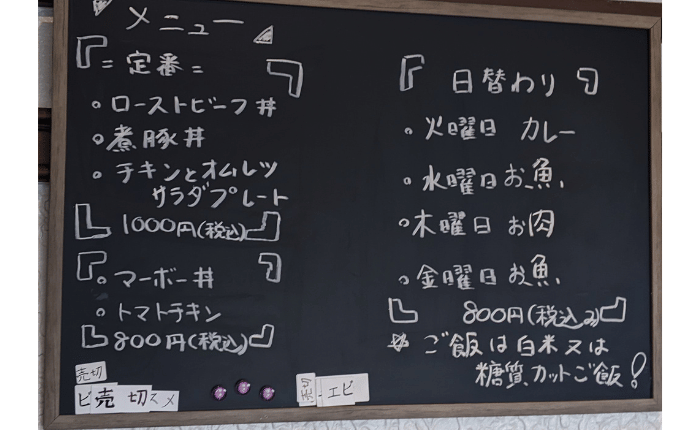 メニュー
= 定番 =
。ローストビーフ丼
。煮豚丼
。チキンとオムレツ
サラダプレート
1000円(税込)
。マーボー丼
。トマトチキン
800円(税込)
売切
売 切
エビ
『日替わり』
。火曜日 カレー
。水曜日 お魚
。木曜日 お肉
。金曜日 お魚
800円(税込)
ご飯は白米又は
糖質カットご飯!